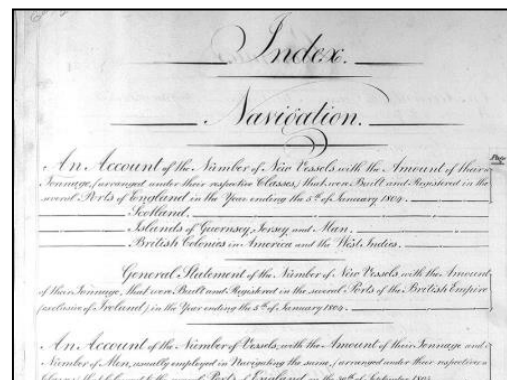 Index.
Navigation.
Folio
An Account of the Number of New Vessels with the Amount of their
Tonnage, (arranged under their respective Classes,) that were Built and Registered in the
several Ports of England in the Year ending the 5th of January 1804.
Scotland.
Islands of Guernsey, Jersey and Man.
British Colonies in America and the West Indies.
General Statement of the Number of New Vessels with the Amount
of their Tonnage, that were Built and Registered in the several Ports of the British Empire
(exclusive of Ireland) in the Year ending the 5th of January 1804.
An Account of the Number of Vessels, with the Amount of their Tonnage and
Number of Men, usually employed in Navigating the same, (arranged under their respective
Ports of England on the 30th of September